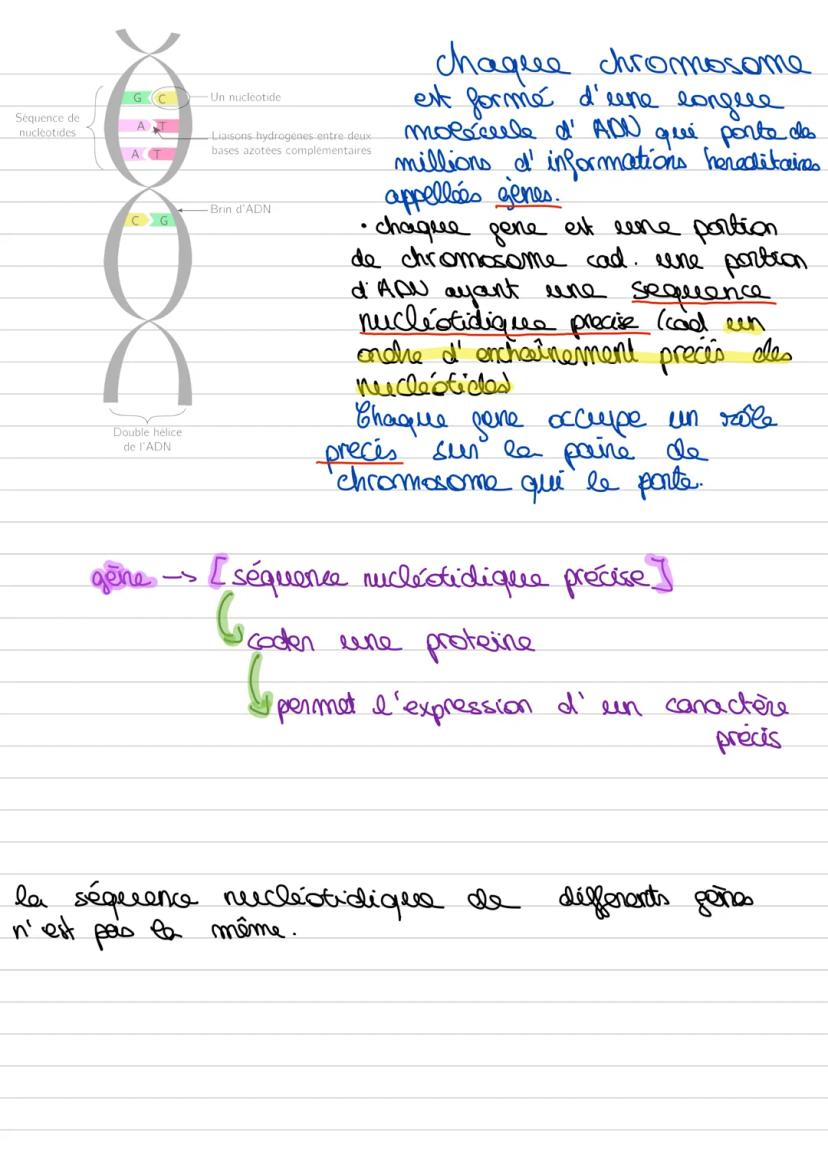 G C
Un nucléotide
Séquence de
nucléotides
A T
Liaisons hydrogènes entre deux
bases azotées complémentaires
A T
Brin d'ADN
C G
Double hélice
de l'ADN
chaque chromosome
est formé d'une longue
molécule d'ADN qui porte des
millions d'informations hereditaires
appellées gènes.
• chaque gene est une portion
de chromosome cad. une portion
d'ADN ayant une sequence
nucléotidique precise (cad un
ordre d'enchaînement precis des
nucléotides)
Chaque gene occupe un rôle
precis sur la paire de
chromosome qui le porte.
gène → [séquence nucléotidique précise]
coder une proteine
permet l'expression d'un caractère
précis
la séquence nucléotidique de différents gènes
n'est pas la même.